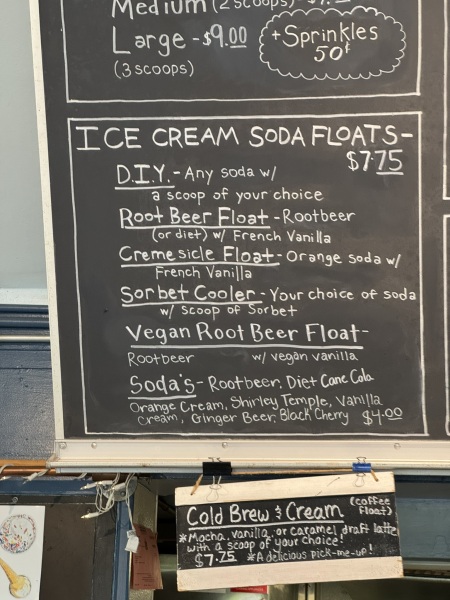 Medium (2 scoops)
Large - $9.00
(3 scoops)
+ Sprinkles
50¢
ICE CREAM SODA FLOATS -
$7.75
D.I.Y. - Any soda w/
a scoop of your choice
Root Beer Float - Rootbeer
(or diet) w/ French Vanilla
Cremesicle Float - Orange soda w/
French Vanilla
Sorbet Cooler - Your choice of soda
w/ scoop of Sorbet
Vegan Root Beer Float -
Rootbeer w/ vegan vanilla
Soda's - Rootbeer, Diet Cane Cola
Orange Cream, Shirley Temple, Vanilla
Cream, Ginger Beer, Black Cherry $4.00
Cold Brew & Cream (coffee
float)
*Mocha, vanilla, or caramel draft latte
with a scoop of your choice!
$7.75 *A delicious pick-me-up!